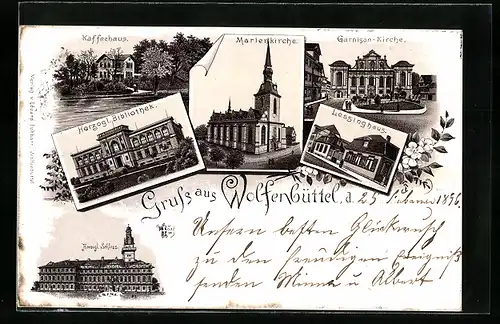 Kaffeehaus.
Marienkirche.
Garnison-Kirche.
Herzogl. Bibliothek.
Lessinghaus.
Gruss aus Wolfenbüttel, d. 25 1896.
Herzogl. Schloss.
Unsern besten Glückwunsch
zu dem freudigen Ereigniß
senden Minna u Albert